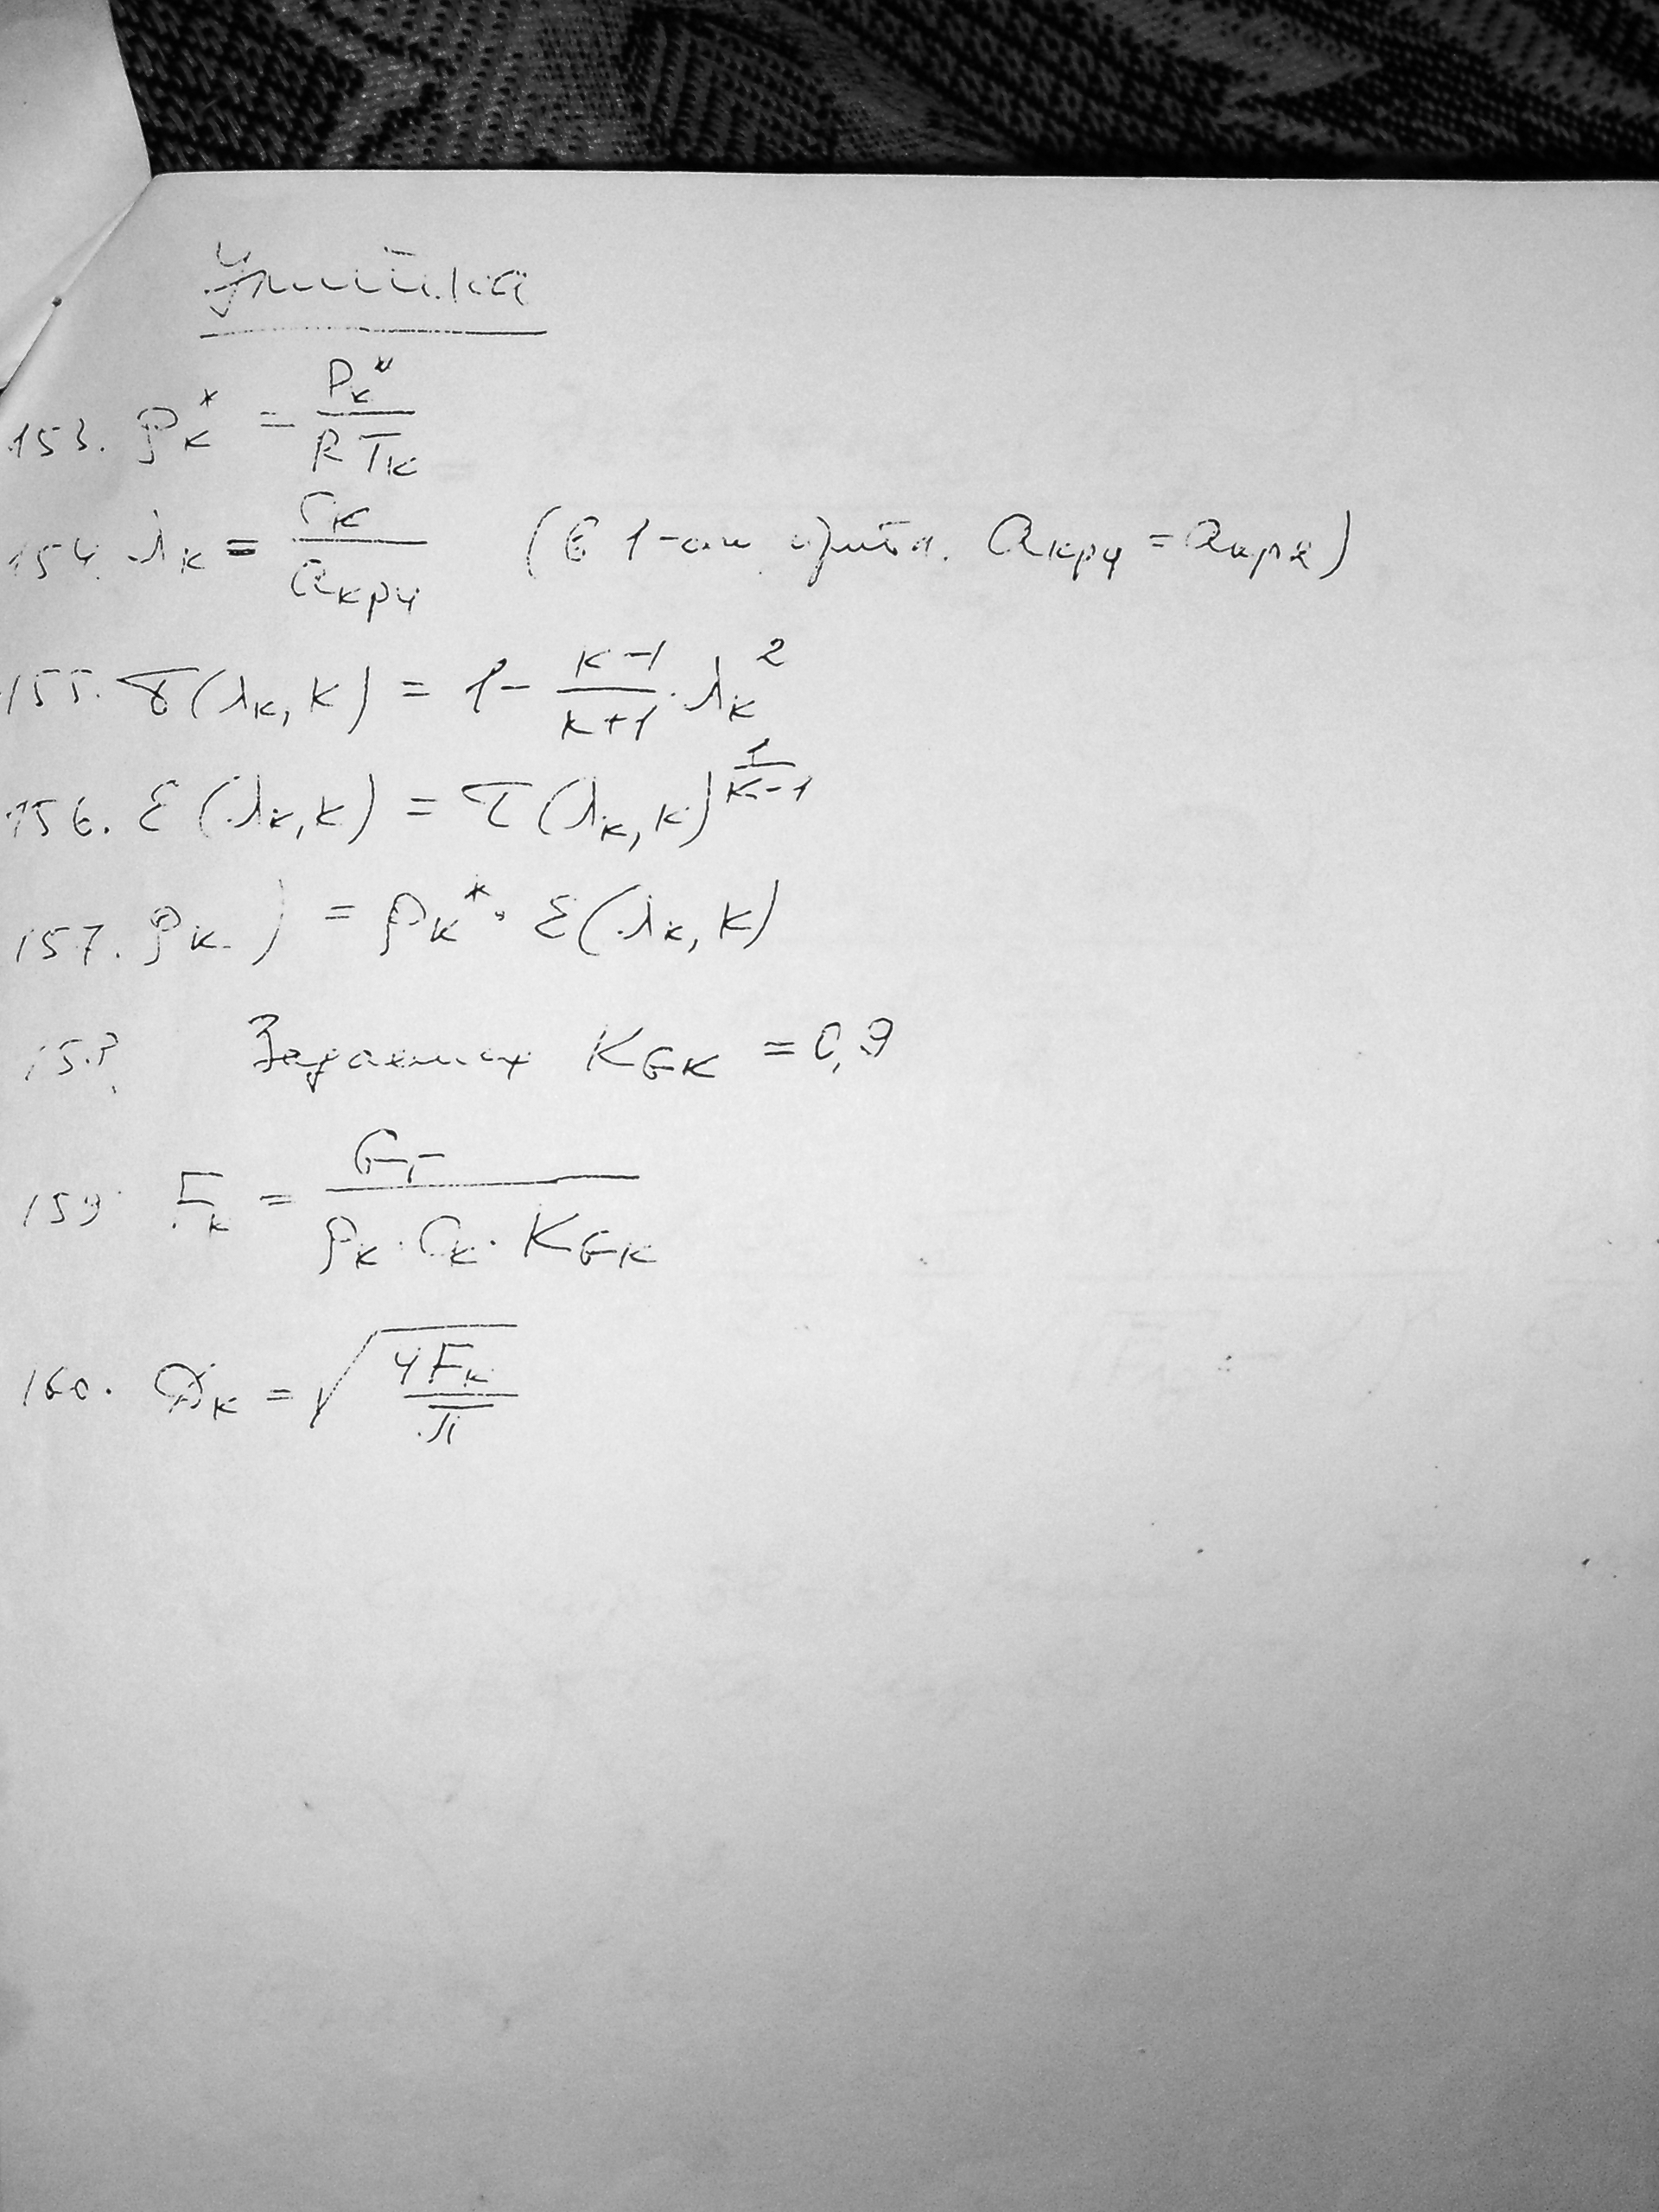 Улитка
153. ρк* = Pк* / R Tк
154. λк = Cк / aкр4 (в 1-ом прибл. aкр4 = aкр2)
155. τ(λк, K) = 1 - K-1 / K+1 · λк²
156. ε(λк, K) = τ(λк, K)^(1 / K-1)
157. ρк ) = ρк* · ε(λк, K)
158 Задаемся KGK = 0,9
159 Fк = GТ / ρк · Cк · KGK
160. Dк = √(4Fк / π)